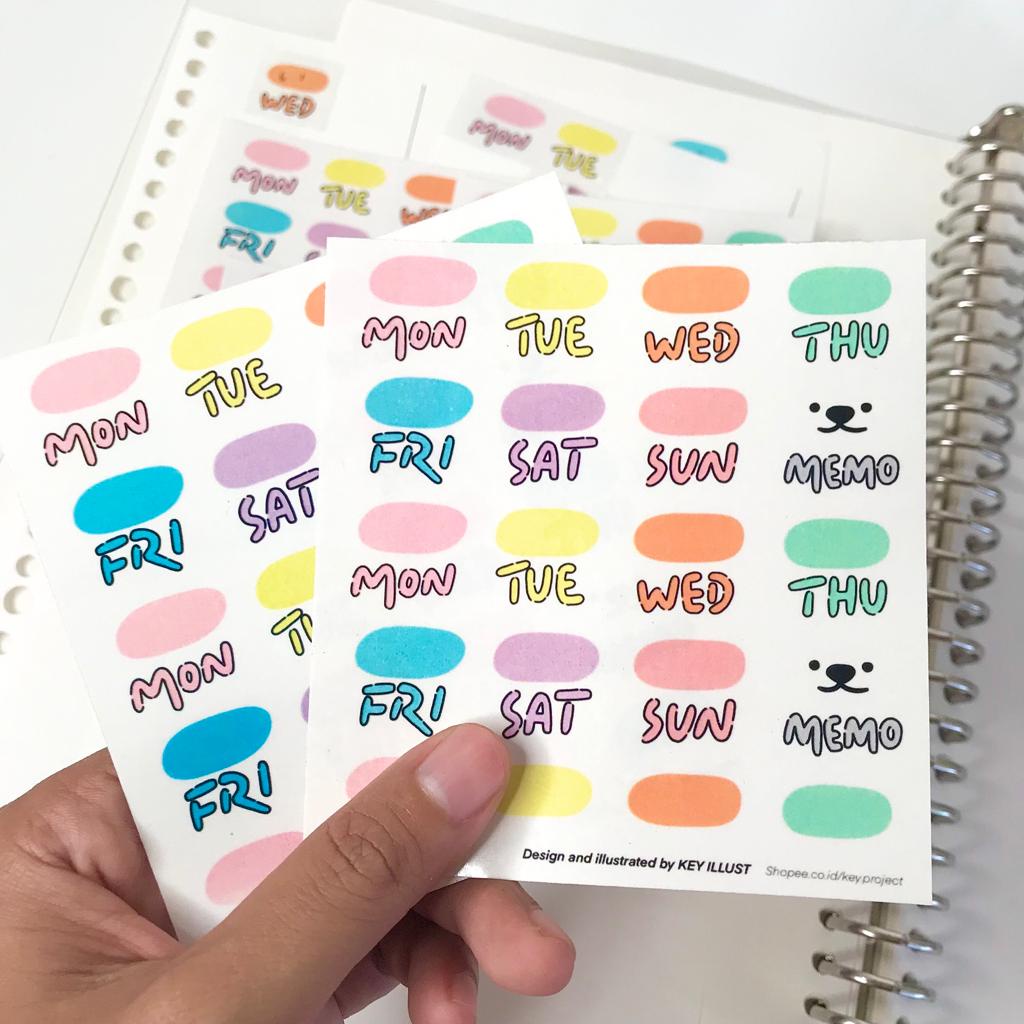 WED
MON TUE
MON TUE WED
FRI
MON TUE
FRI SAT
MON TU
FRI
MON TUE WED THU
FRI SAT SUN MEMO
MON TUE WED THU
FRI SAT SUN MEMO
Design and illustrated by KEY ILLUST Shopee.co.id/key.project